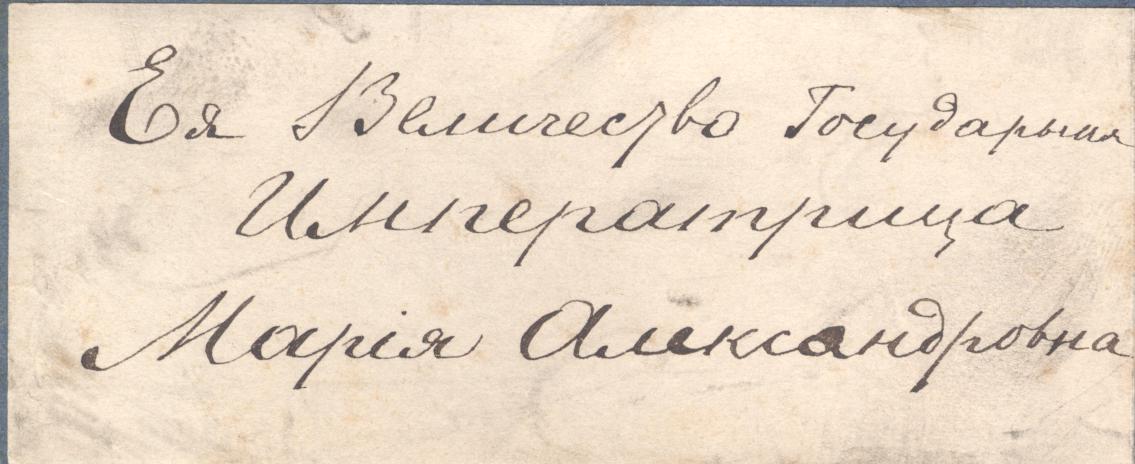 Ея Величество Государыня
Императрица
Марія Александровна